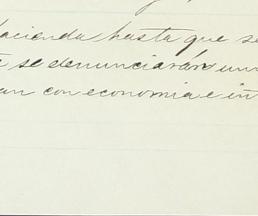 hacienda hasta que se
se denunciarán un
an con economia e in